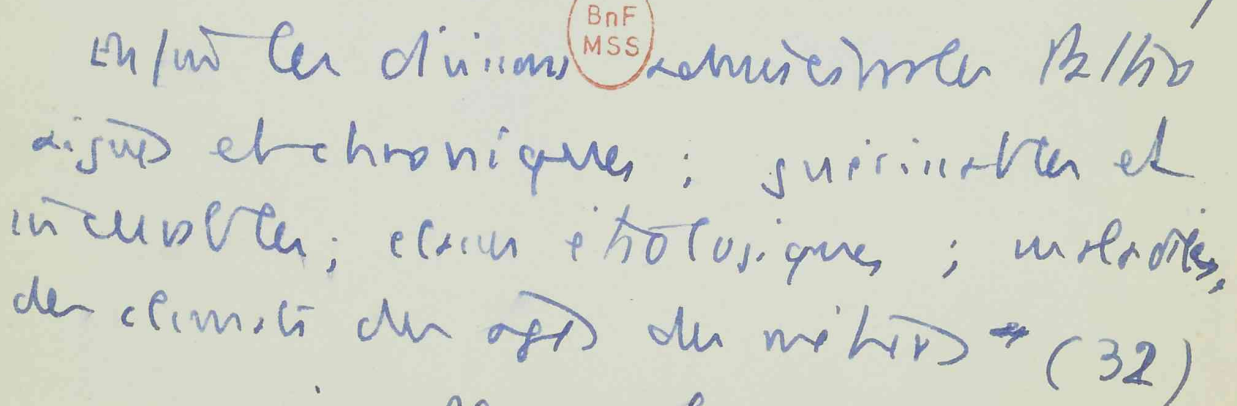 Enfin les divisions BnF MSS
aigues et chroniques ; guérissables et
incurables ; classes étiologiques ; maladies,
des climats des ages des métiers (32)